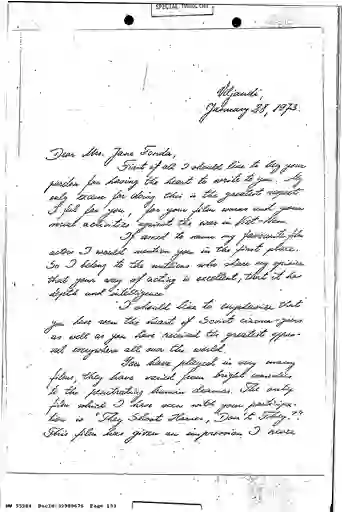 SPECIAL
Viljandi,
January 28, 1973.
Dear Mrs. Jane Fonda,
First of all I should like to beg your
pardon for having the heart to write to you. My
only excuse for doing this is the greatest respect
I feel for you, for your film work and your
much activities against the war in Viet-Nam.
If asked to name my favourite film
actor I would mention you in the first place.
So I belong to the millions who share my opinion
that your way of acting is excellent, that it has
depth and intelligence.
I should like to emphasize that
you have won the heart of Soviet cinema-goers
as well as you have received the greatest appro-
val everywhere all over the world.
You have played in very many
films they have varied from bright comedies
to the penetrating human dramas. The only
film which I have seen with your participa-
tion is "They Shoot Horses, Don't They?".
This film has given an impression I never
NW 55284 DocId:32989675 Page 133